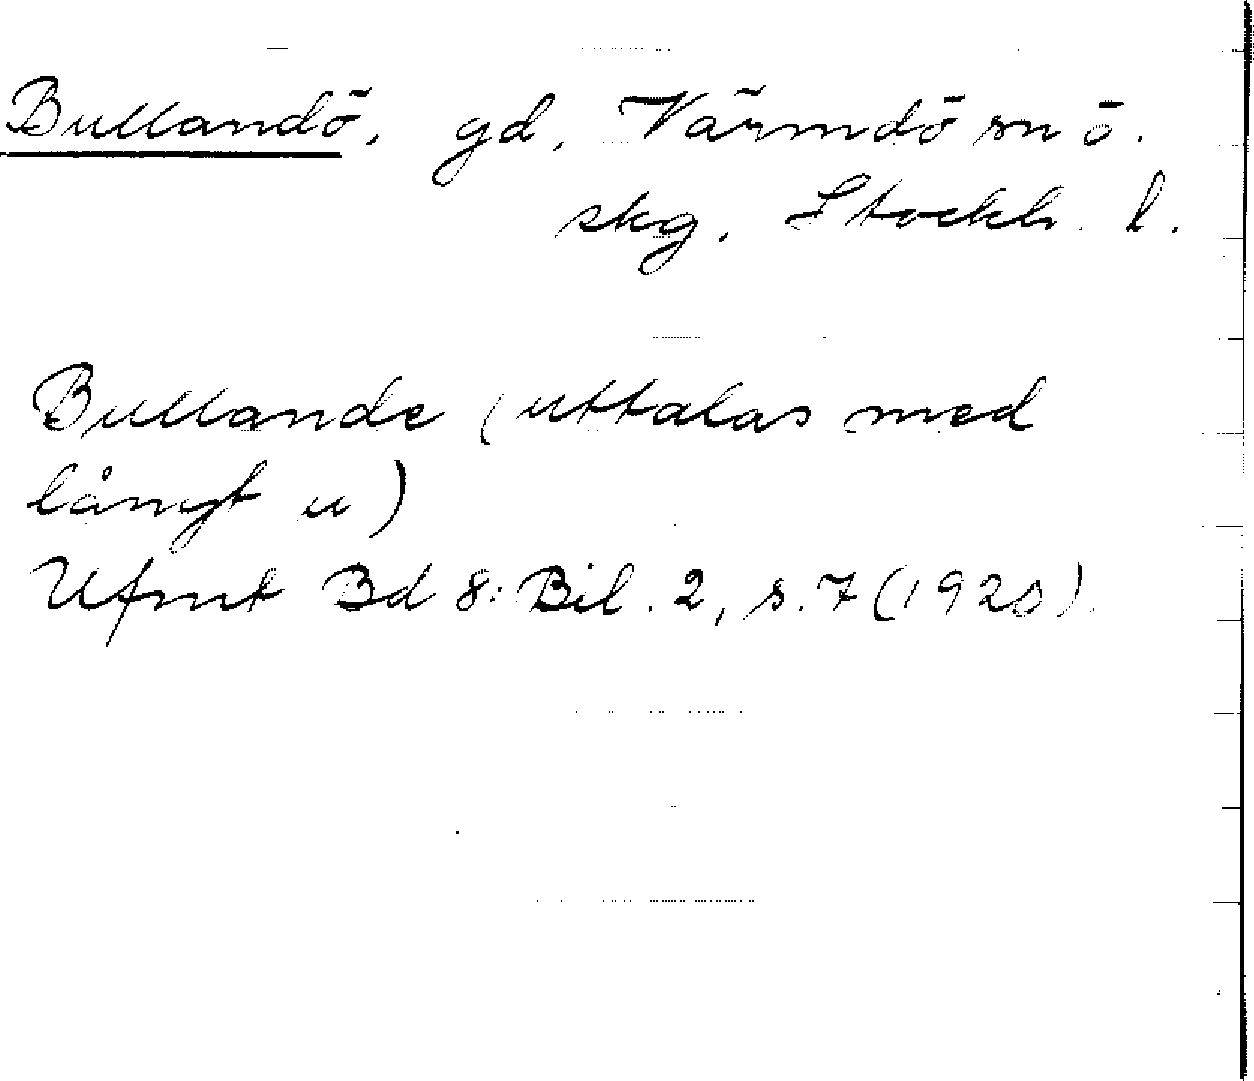 Bullandö, gd, Värmdö sn ö.
skg. Stockh. l.
Bullande (uttalas med
långt u)
Ufmt Bd 8: Bil. 2, s. 7 (1920).